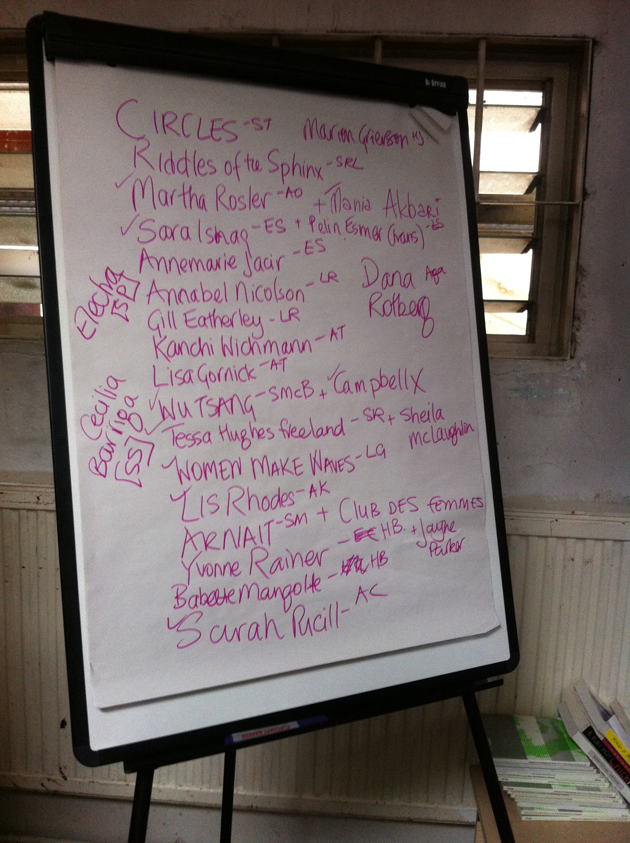 CIRCLES - ST Marion Grierson
Riddles of the Sphinx - SRL
✓ Martha Rosler - AO + ✓ Mania Akbari
✓ Sara Ishaq - ES + Pelin Esmer (Mars)
Annemarie Jacir - ES
Annabel Nicolson - LR
Dana Aga
Rotberg
Gill Eatherley - LR
Kanchi Wichmann - AT
Lisa Gornick - AT
✓ WU TSANG - SMcB + ✓ Campbell X
Tessa Hughes Freeland - SR + Sheila
McLaughlin
✓ WOMEN MAKE WAVES - LG
✓ Lis Rhodes - AK
ARNAIT - SM + CLUB DES FEMMES
Yvonne Rainer - HB. +
Babette Mangolte - HB
✓ Sarah Pucill - AC
[SP]
Cecilia
Barriga
[SS]